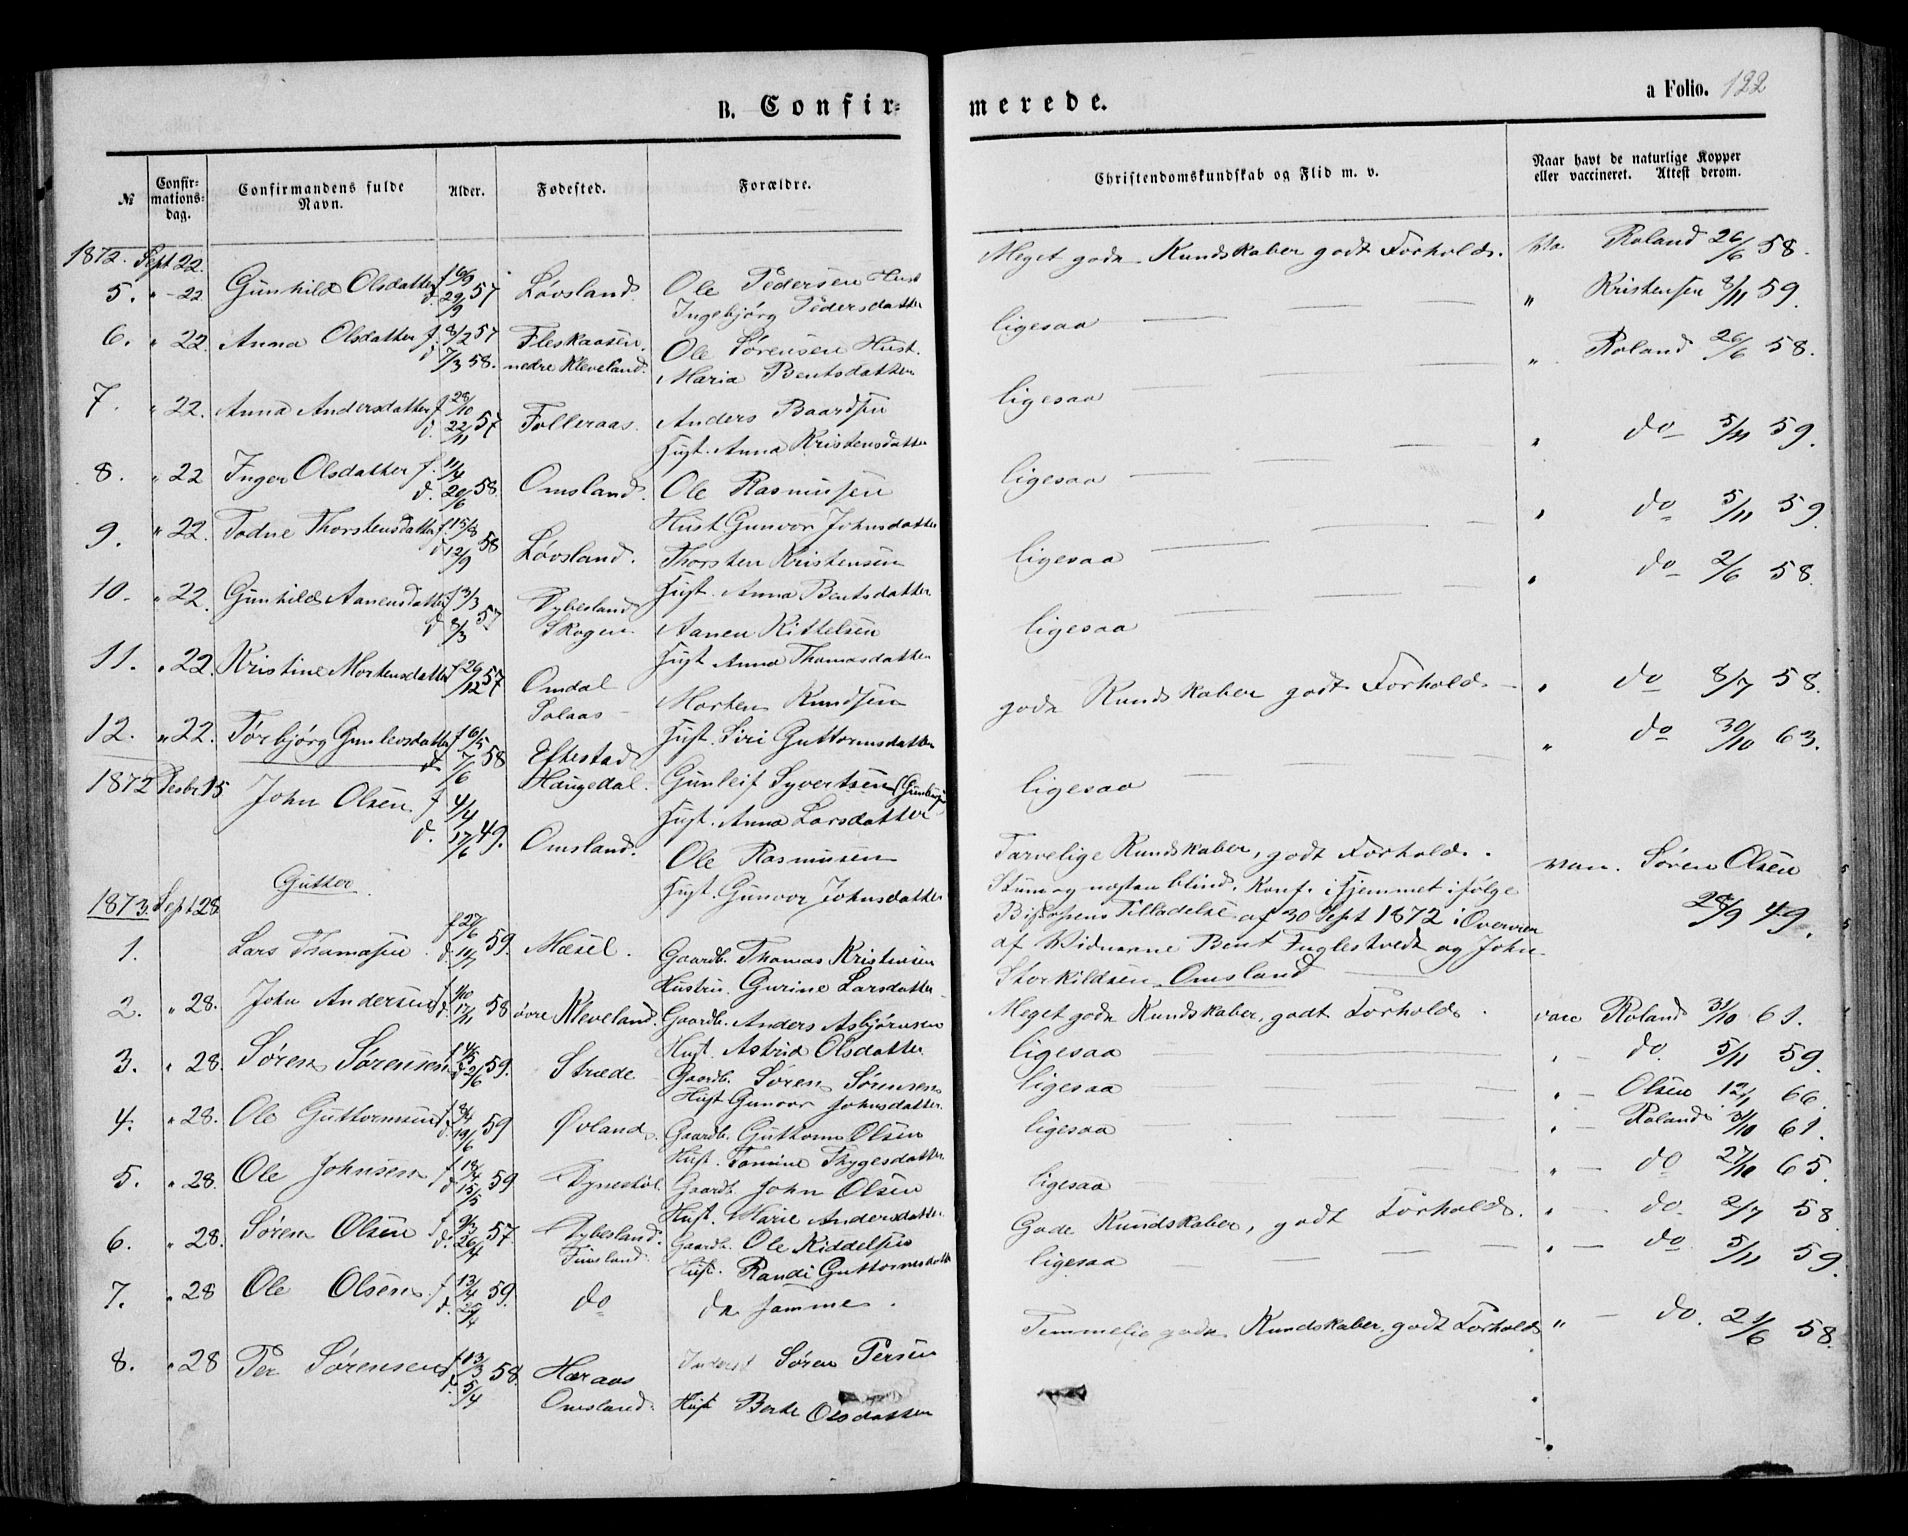 B. Confir-
merede.
a Folio. 122
№
Confir-
mations-
dag.
Confirmandens fulde
Navn.
Alder.
Fødested.
Forældre.
Christendomskundskab og Flid m. v.
Naar havt de naturlige Kopper
eller vaccineret. Attest derom.
1872. Sept 22.
5. " 22 Gunhild Olsdatter f. d. 29/9 57 Løvsland. Ole Pedersen Hust
Ingebjørg Pedersdatter
Meget gode Kundskaber godt Forhold. Roland 26/6 58.
6. " 22. Anna Olsdatter f. 8/2 57 Fleskaasen. Ole Sørensen Hust.
d. 7/3 58. nedre Kleveland. Maria Bentsdatter
ligesaa " Kristensen 8/11 59.
7. " 22. Anna Andersdatter f. 28/10 d. 22/11 57 Folleraas. Anders Baardsen
Hust. Anna Kristensdatter
ligesaa " Roland 26/6 58.
8. " 22 Inger Olsdatter f. 11/4 d. 20/6 58. Omsland. Ole Rasmusen
Hust Gunvor Johnsdatter
ligesaa " do 5/11 59.
9. " 22. Todne Thorstensdatter f. 15/8 d. 12/9 58 Løvsland. Thorsten Kristensen
Hust. Anna Bentsdatter
ligesaa " do 5/11 59.
10. " 22. Gunhild Aanensdatter f. 3/3 d. 8/3 57 Dybesland Aanen Kittelsen
Skogen. Hust Anna Thomasdatter
ligesaa " do 2/6 58.
11. " 22. Kristine Mortensdatter f. 26/12 57 Omdal Morten Knudsen
Solaas Hust. Siri Guttormsdatter
gode Kundskaber godt Forhold " do 8/7 58.
12. " 22. Torbjørg Gunleivsdatter f. 16/5 d. 7/6 58 Eftestad Gunleif Syvertsen
Haugedal. Hust. Anna Larsdatter
ligesaa " do 30/10 63.
1872 Desbr 15 John Olsen f. 4/4 d. 17/6 49. Omsland. Ole Rasmusen
Hust. Gunvor Johnsdatter
Tarvelige Kundskaber, godt Forhold. vac. Søren Olsen
Stum og næsten blind. Konf. i Hjemmet ifølge 28/9 49.
Biskopens Tilladelse af 30 Sept 1872 i Overvær
af Vidnerne Bent Fuglestvedt og John
Storkildsen Omsland
Gutter
1873. Sept 28
1. Lars Thomasen f. 27/6 d. 10/7 59. Mæsel. Gaardb. Thomas Kristensen
Hustru. Gurine Larsdatter
Meget gode Kundskaber, godt Forhold. vac Roland 31/10 61.
2. " 28. John Andersen d. 17/11 58 øvre Kleveland. Gaardb. Anders Asbjørnsen
Hust. Astrid Olsdatter
ligesaa do. 5/11 59.
3. " 28. Søren Sørensen f. 4/5 d. 2/6 59. Stræde Gaardb. Søren Sørensen
Hust Gunvor Johnsdatter.
ligesaa Olsen 12/1 66.
4. " 28. Ole Guttormsen f. 8/4 d. 19/6 59 Øvland. Gaardb. Guttorm Olsen
Hust. Tomine Thygesdatter
ligesaa Roland 31/10 61.
5. " 28. Ole Johnsen f. 18/4 d. 15/5 59 Dynestøl. Gaardb. John Olsen
Hust. Marie Andersdatter
ligesaa do 27/10 65.
6. " 28. Søren Olsen f. 9/3 d. 26/4 57. Dybesland. Gaardb. Ole Kiddelsen
Finsland. Hust. Randi Guttormsdatter
Gode Kundskaber, godt Forhold. do. 2/7 58.
7. " 28 Ole Olsen f. 13/4 d. 25/4 59. do de samme.
ligesaa do. 5/11 59.
8. " 28 Per Sørensen f. 13/3 d. 5/4 58. Høraas Inderst Søren Persen
Omsland. Hust Berte Olsdatter
Temmelig gode Kundskaber, godt Forhold " do. 21/6 58.